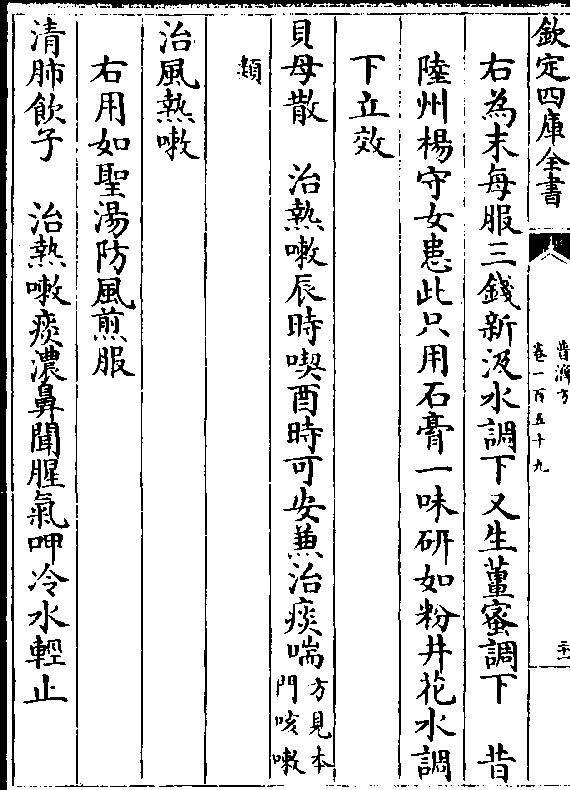 欽定四庫全書
普濟方
卷一百五十九
右為末每服三錢新汲水調下又生薑蜜調下　昔
陸州楊守女患此只用石膏一味研如粉井花水調
下立效
貝母散　治熱嗽辰時喫酉時可安兼治痰喘方見本
門咳嗽
類
治風熱嗽
右用如聖湯防風煎服
清肺飲子　治熱嗽痰濃鼻聞腥氣呷冷水輕止